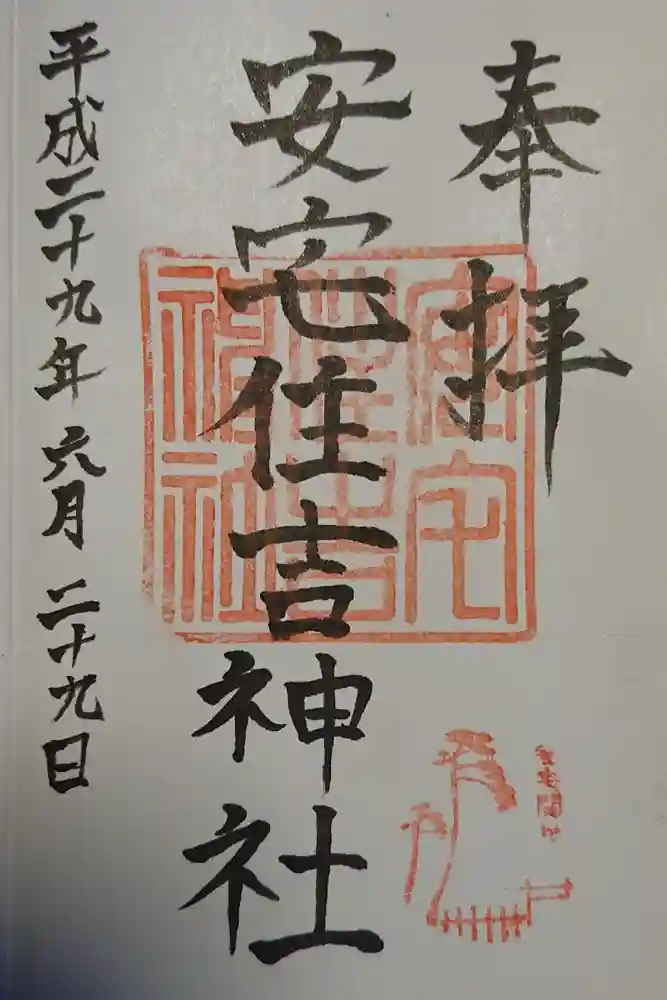 奉拝
安宅住吉神社
平成二十九年六月二十九日
安宅住吉神社